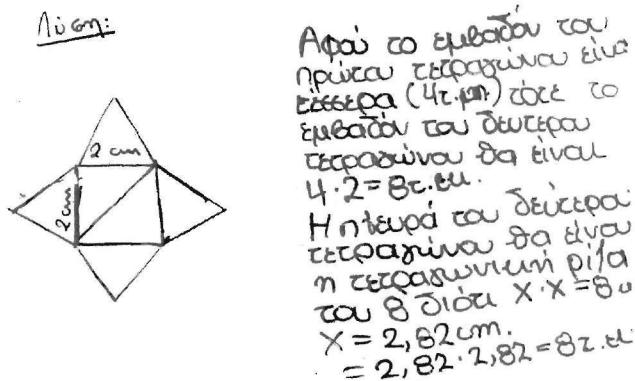 Λύση:
2 cm
2cm
Αφού το εμβαδόν του
πρώτου τετραγώνου είναι
τέσσερα (4τ.μμ.) τότε το
εμβαδόν του δευτέρου
τετραγώνου θα είναι
4·2=8τ.εκ.
Η πλευρά του δεύτερου
τετραγώνου θα είναι
η τετραγωνική ρίζα
του 8 διότι X·X=8
X=2,82cm.
=2,82·2,82=8τ.εκ